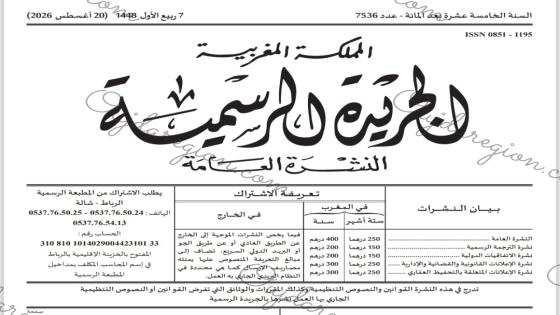 السنة الخامسة عشرة بعد المائة - عدد 7536
7 ربيع الأول 1448 (20 أغسطس 2026)
ISSN 0851 - 1195
المملكة المغربية
الجريدة الرسمية
النشرة العامة
بيـان النشـرات
تعريفة الاشتراك
في المغرب
ستة أشهر
سنة
في الخارج
النشرة العامة 250 درهما 400 درهم
نشرة الترجمة الرسمية 150 درهما 200 درهم
نشرة الاتفاقيات الدولية 150 درهما 200 درهم
نشرة الإعلانات القانونية والقضائية والإدارية 250 درهما 300 درهم
نشرة الإعلانات المتعلقة بالتحفيظ العقاري 250 درهما 300 درهم
فيما يخص النشرات الموجهة إلى الخارج
عن الطريق العادي أو عن طريق الجو
أو البريد الدولي السريع، تضاف إلى
مبالغ التعريفة المنصوص عليها يمنته
مصاريف الإرسال كما هي محددة في
النظام البريدي الجاري به العمل.
يطلب الاشتراك من المطبعة الرسمية
الرباط - شالة
الهاتف : 0537.76.50.24 - 0537.76.50.25
0537.76.54.13
الحساب رقم :
310 810 1014029004423101 33
المفتوح بالخزينة الإقليمية بالرباط
في إسم المحاسب المكلف بمداخيل
المطبعة الرسمية
تدرج في هذه النشرة القوانين والنصوص التنظيمية وكذلك المقررات والوثائق التي تفرض القوانين أو النصوص التنظيمية
الجاري بها العمل نشرها بالجريدة الرسمية
صفحة
صفحة
Oujdaregion.com